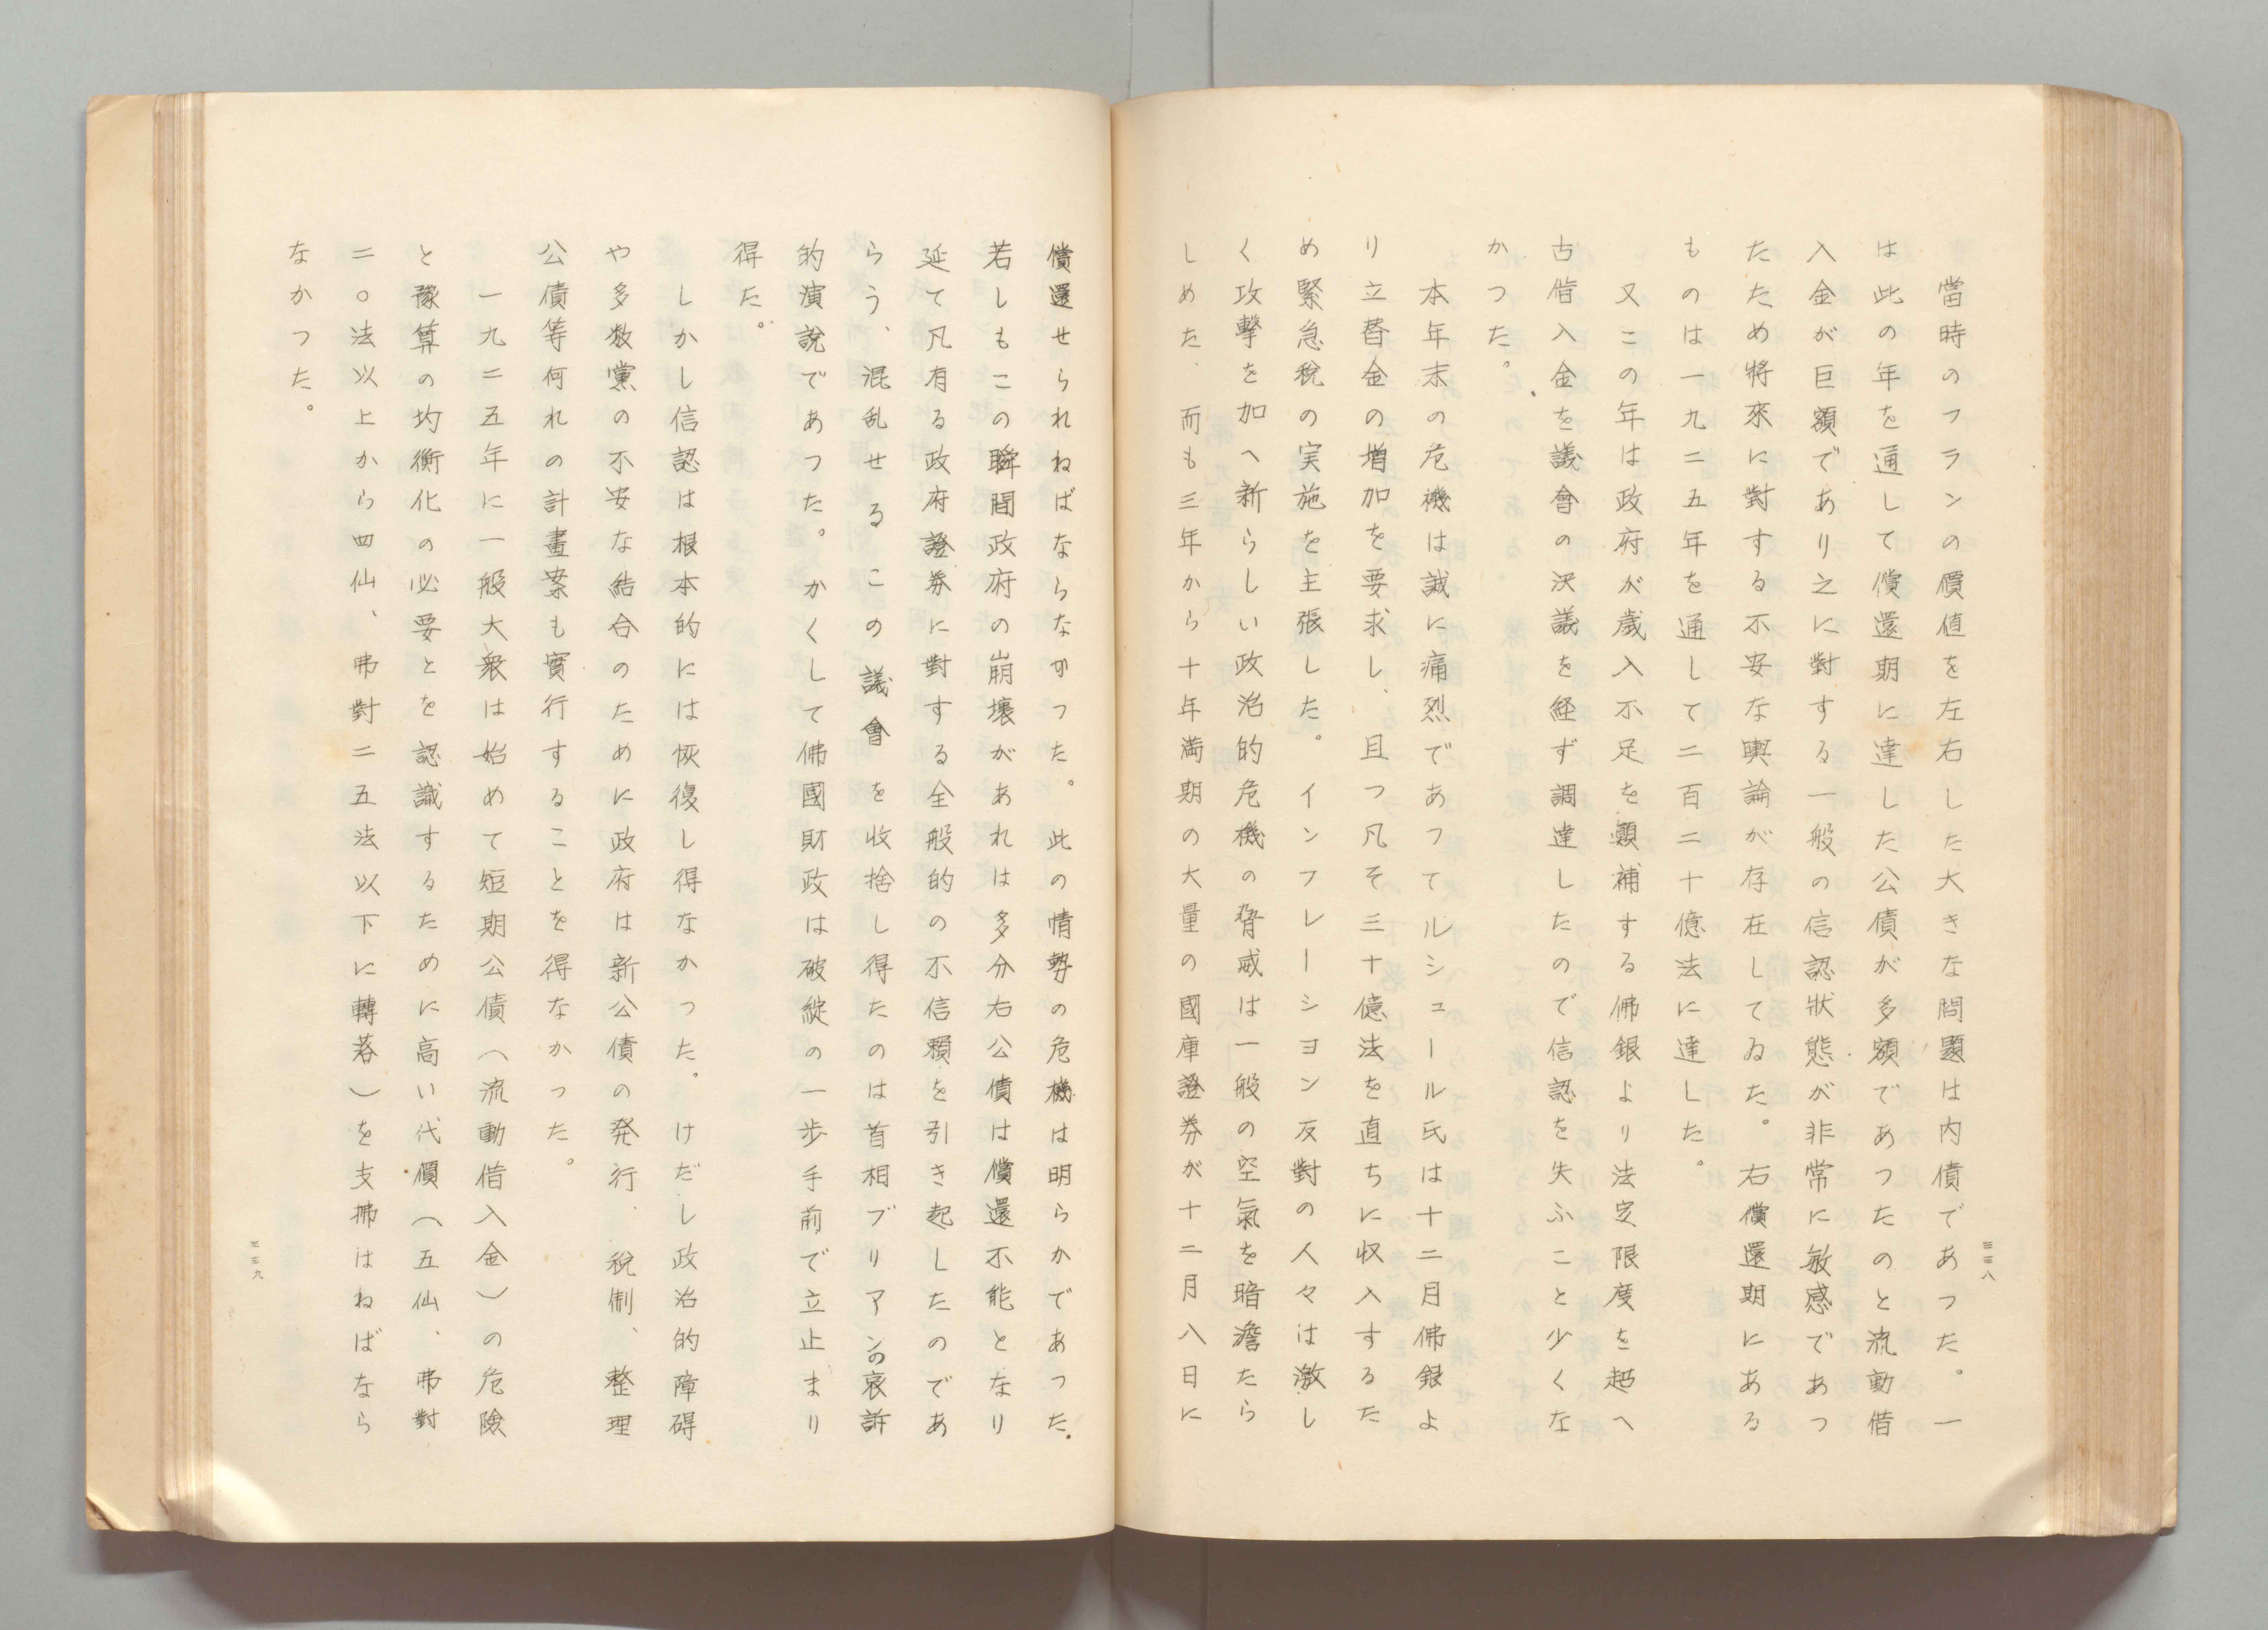 三三八
當時のフランの價値を左右した大きな問題は内債であつた。一
は此の年を通して償還期に達した公債が多額であつたのと流動借
入金が巨額であり之に對する一般の信認狀態が非常に敏感であつ
たため將來に對する不安な輿論が存在してゐた。右償還期にある
ものは一九二五年を通して二百二十億法に達した。
又この年は政府が歳入不足を顚補する佛銀より法定限度を超へ
古借入金を議會の決議を経ず調達したので信認を失ふこと少くな
かつた。
本年末の危機は誠に痛烈であつてルシュール氏は十二月佛銀よ
り立替金の増加を要求し、且つ凡そ三十億法を直ちに収入するた
め緊急税の実施を主張した。インフレーシヨン反對の人々は激し
く攻撃を加へ新らしい政治的危機の脅威は一般の空氣を暗澹たら
しめた、而も三年から十年満期の大量の國庫證券が十二月八日に
償還せられねばならなかつた。此の情勢の危機は明らかであつた.
若しもこの瞬間政府の崩壞があれは多分右公債は償還不能となり
延て凡有る政府證券に對する全般的の不信賴を引き起したのであ
らう、混乱せるこの議會を收捨し得たのは首相ブリアンの哀訴
的演說であつた。かくして佛國財政は破綻の一步手前で立止まり
得た。
しかし信認は根本的には恢復し得なかつた。けだし政治的障碍
や多数黨の不安な結合のために政府は新公債の発行、稅制、整理
公債等何れの計畫案も實行することを得なかつた。
一九二五年に一般大衆は始めて短期公債（流動借入金）の危險
と豫算の均衡化の必要とを認識するために高い代價（五仙、弗對
二〇法以上から四仙、弗對二五法以下に轉落）を支拂はねばなら
なかつた。
三三九